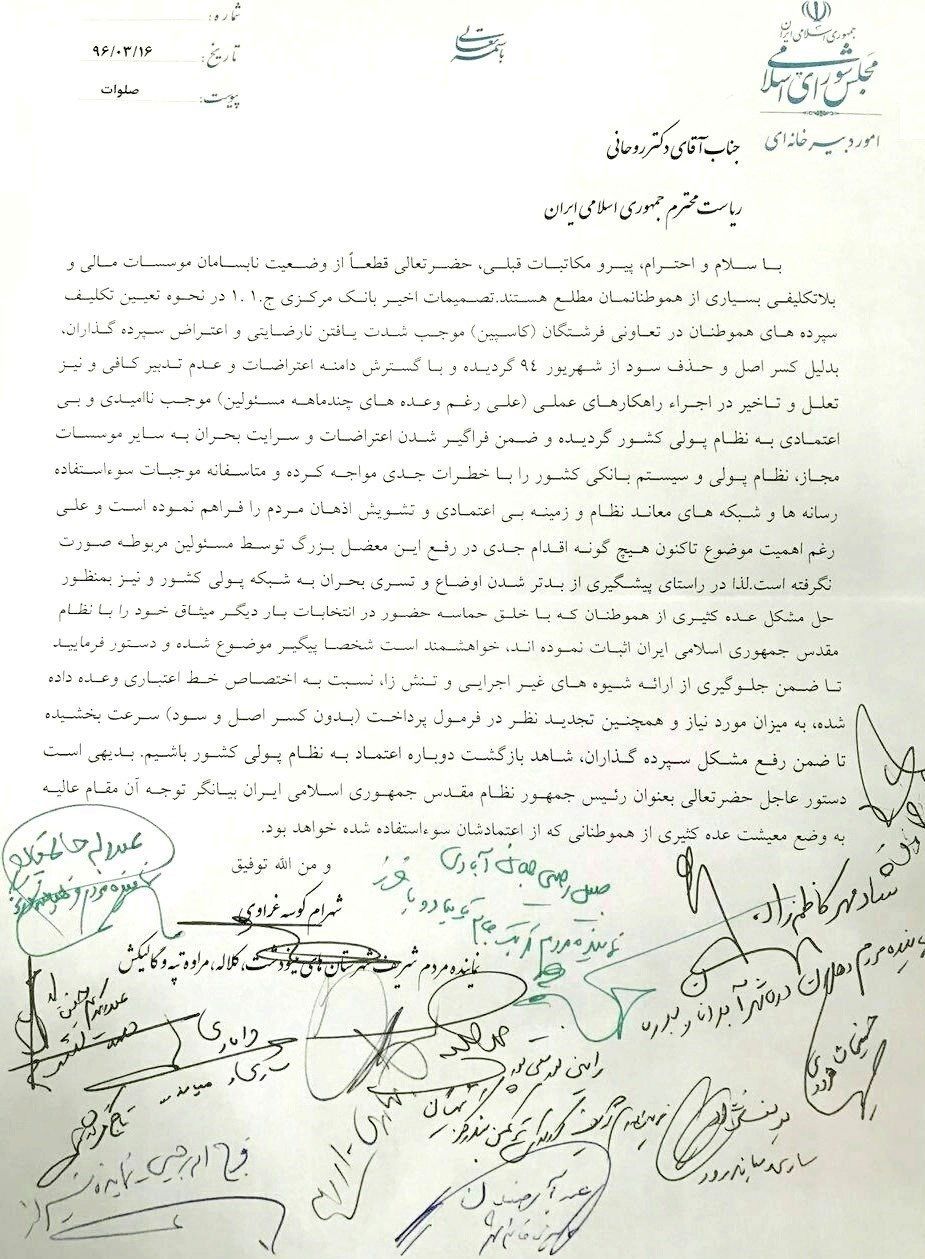 باسمه تعالی
جمهوری اسلامی ایران
مجلس شورای اسلامی
امور دبیرخانه‌ای
شماره:
تاریخ: ۹۶/۰۳/۱۶
پیوست: صلوات
جناب آقای دکتر روحانی
ریاست محترم جمهوری اسلامی ایران
با سلام و احترام، پیرو مکاتبات قبلی، حضرتعالی قطعاً از وضعیت نابسامان موسسات مالی و
بلاتکلیفی بسیاری از هموطنانمان مطلع هستند.تصمیمات اخیر بانک مرکزی ج.ا.ا در نحوه تعیین تکلیف
سپرده های هموطنان در تعاونی فرشتگان (کاسپین) موجب شدت یافتن نارضایتی و اعتراض سپرده گذاران،
بدلیل کسر اصل و حذف سود از شهریور ۹٤ گردیده و با گسترش دامنه اعتراضات و عدم تدبیر کافی و نیز
تعلل و تاخیر در اجراء راهکارهای عملی (علی رغم وعده های چندماهه مسئولین) موجب ناامیدی و بی
اعتمادی به نظام پولی کشور گردیده و ضمن فراگیر شدن اعتراضات و سرایت بحران به سایر موسسات
مجاز، نظام پولی و سیستم بانکی کشور را با خطرات جدی مواجه کرده و متاسفانه موجبات سوءاستفاده
رسانه ها و شبکه های معاند نظام و زمینه بی اعتمادی و تشویش اذهان مردم را فراهم نموده است و علی
رغم اهمیت موضوع تاکنون هیچ گونه اقدام جدی در رفع این معضل بزرگ توسط مسئولین مربوطه صورت
نگرفته است.لذا در راستای پیشگیری از بدتر شدن اوضاع و تسری بحران به شبکه پولی کشور و نیز بمنظور
حل مشکل عده کثیری از هموطنان که با خلق حماسه حضور در انتخابات بار دیگر میثاق خود را با نظام
مقدس جمهوری اسلامی ایران اثبات نموده اند، خواهشمند است شخصا پیگیر موضوع شده و دستور فرمایید
تا ضمن جلوگیری از ارائه شیوه های غیر اجرایی و تنش زا، نسبت به اختصاص خط اعتباری وعده داده
شده، به میزان مورد نیاز و همچنین تجدید نظر در فرمول پرداخت (بدون کسر اصل و سود) سرعت بخشیده
تا ضمن رفع مشکل سپرده گذاران، شاهد بازگشت دوباره اعتماد به نظام پولی کشور باشیم. بدیهی است
دستور عاجل حضرتعالی بعنوان رئیس جمهور نظام مقدس جمهوری اسلامی ایران بیانگر توجه آن مقام عالیه
به وضع معیشت عده کثیری از هموطنانی که از اعتمادشان سوءاستفاده شده خواهد بود.
و من الله توفیق
شهرام کوسه غراوی
نماینده مردم شریف شهرستان های مینودشت، کلاله، مراوه تپه و گالیکش
شادمهر کاظم زاده
نماینده مردم دهلران دره شهر آبدانان و بدره